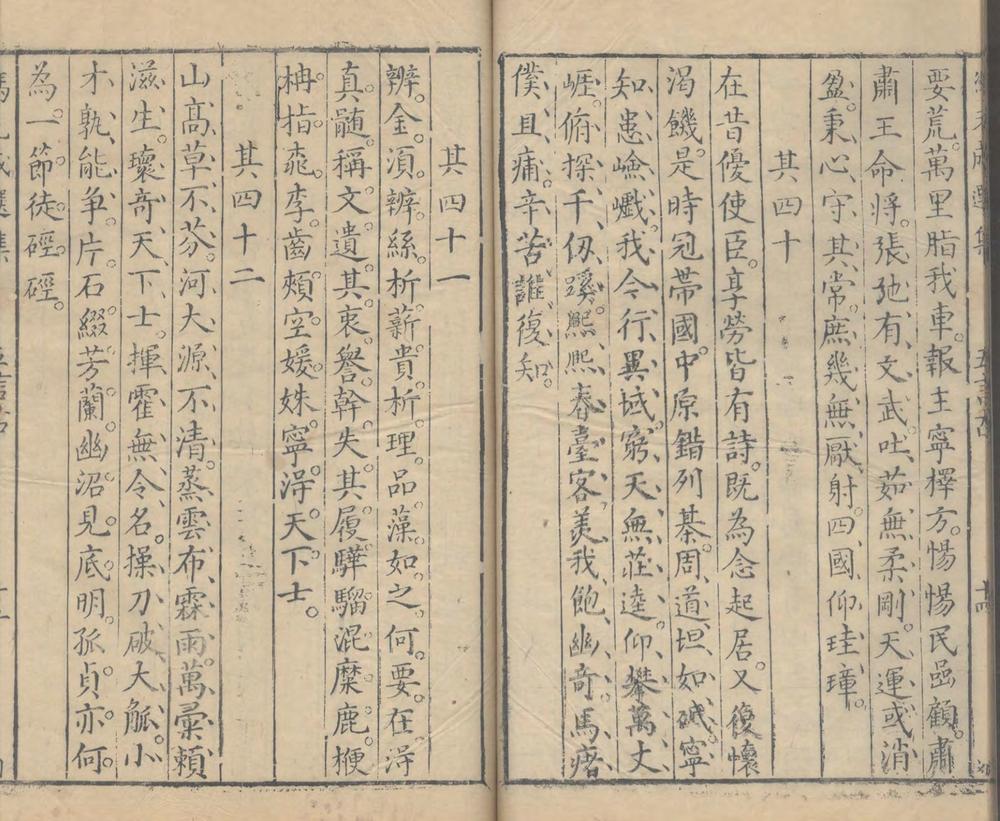 要荒萬里脂我車報主寧擇方惕惕民嵒顧肅
肅王命將張弛有文武吐茹無柔剛天運或消
盈秉心守其常庶幾無厭射四國仰珪璋
其四十
在昔優使臣享勞皆有詩既為念起居又復懷
渴饑是時冠帶國中原錯列棊周道坦如砥寧
知患嶮巇我今行異域窮天無莊逵仰攀萬丈
崕俯探千仭蹊熙熙春臺客羨我飽幽奇馬瘏
僕且痡辛苦誰復知
其四十一
辨金須辨絲析薪貴析理品藻如之何要在淂
真髄稱文遺其衷譽幹失其履驊騮混糜鹿楩
柟指桒李齒頰空媛姝寧淂天下士
其四十二
山髙草不芬河大源不清蒸雲布霖雨萬彚賴
滋生瓌奇天下士揮霍無令名操刀破大觚小
才孰能争片石綴芳蘭幽沼見底明孤貞亦何
為一節徒硜硜